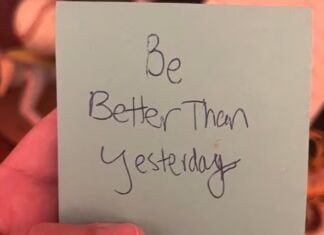 Be
Better Than
Yesterday